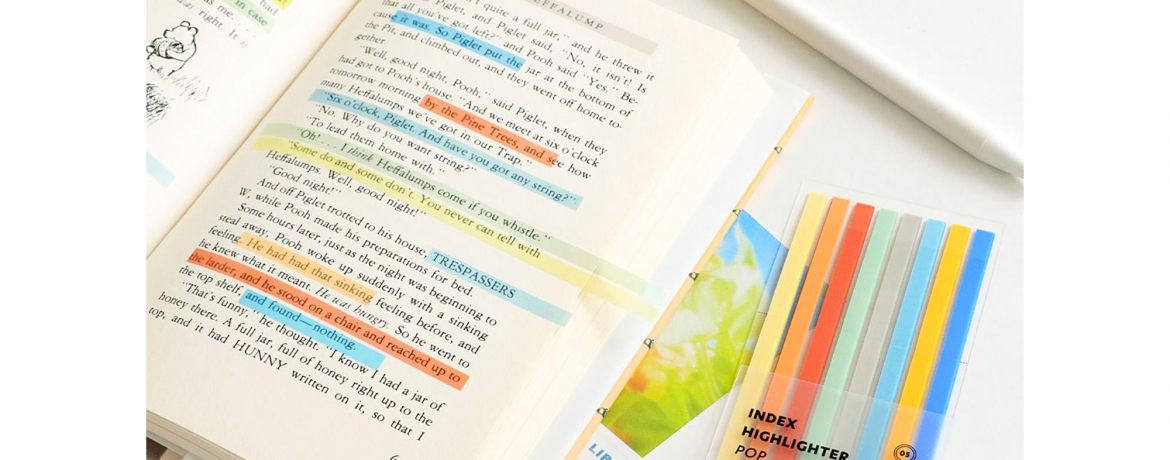 had
in case
as me.
was right. It
EFFALUMP
quite a full jar," and he threw it
Piglet, and Piglet said, "No, it isn't! Is
that all you've got left?" and Pooh said "Yes." Be-
cause it was. So Piglet put the jar at the bottom of
the Pit, and climbed out, and they went off home to-
gether.
"Well, good night, Pooh," said Piglet, when they
had got to Pooh's house. "And we meet at six o'clock
tomorrow morning by the Pine Trees, and see how
many Heffalumps we've got in our Trap."
"Six o'clock, Piglet. And have you got any string?"
"No. Why do you want string?"
"To lead them home with."
"Oh! . . . I think Heffalumps come if you whistle."
"Some do and some don't. You never can tell with
Heffalumps. Well, good night!"
"Good night!"
And off Piglet trotted to his house, TRESPASSERS
W, while Pooh made his preparations for bed.
Some hours later, just as the night was beginning to
steal away, Pooh woke up suddenly with a sinking
feeling. He had had that sinking feeling before, and
he knew what it meant. He was hungry. So he went to
the larder, and he stood on a chair and reached up to
the top shelf, and found—nothing.
"That's funny," he thought. "I know I had a jar of
honey there. A full jar, full of honey right up to the
top, and it had HUNNY written on it, so that I
INDEX
HIGHLIGHTER
POP
05